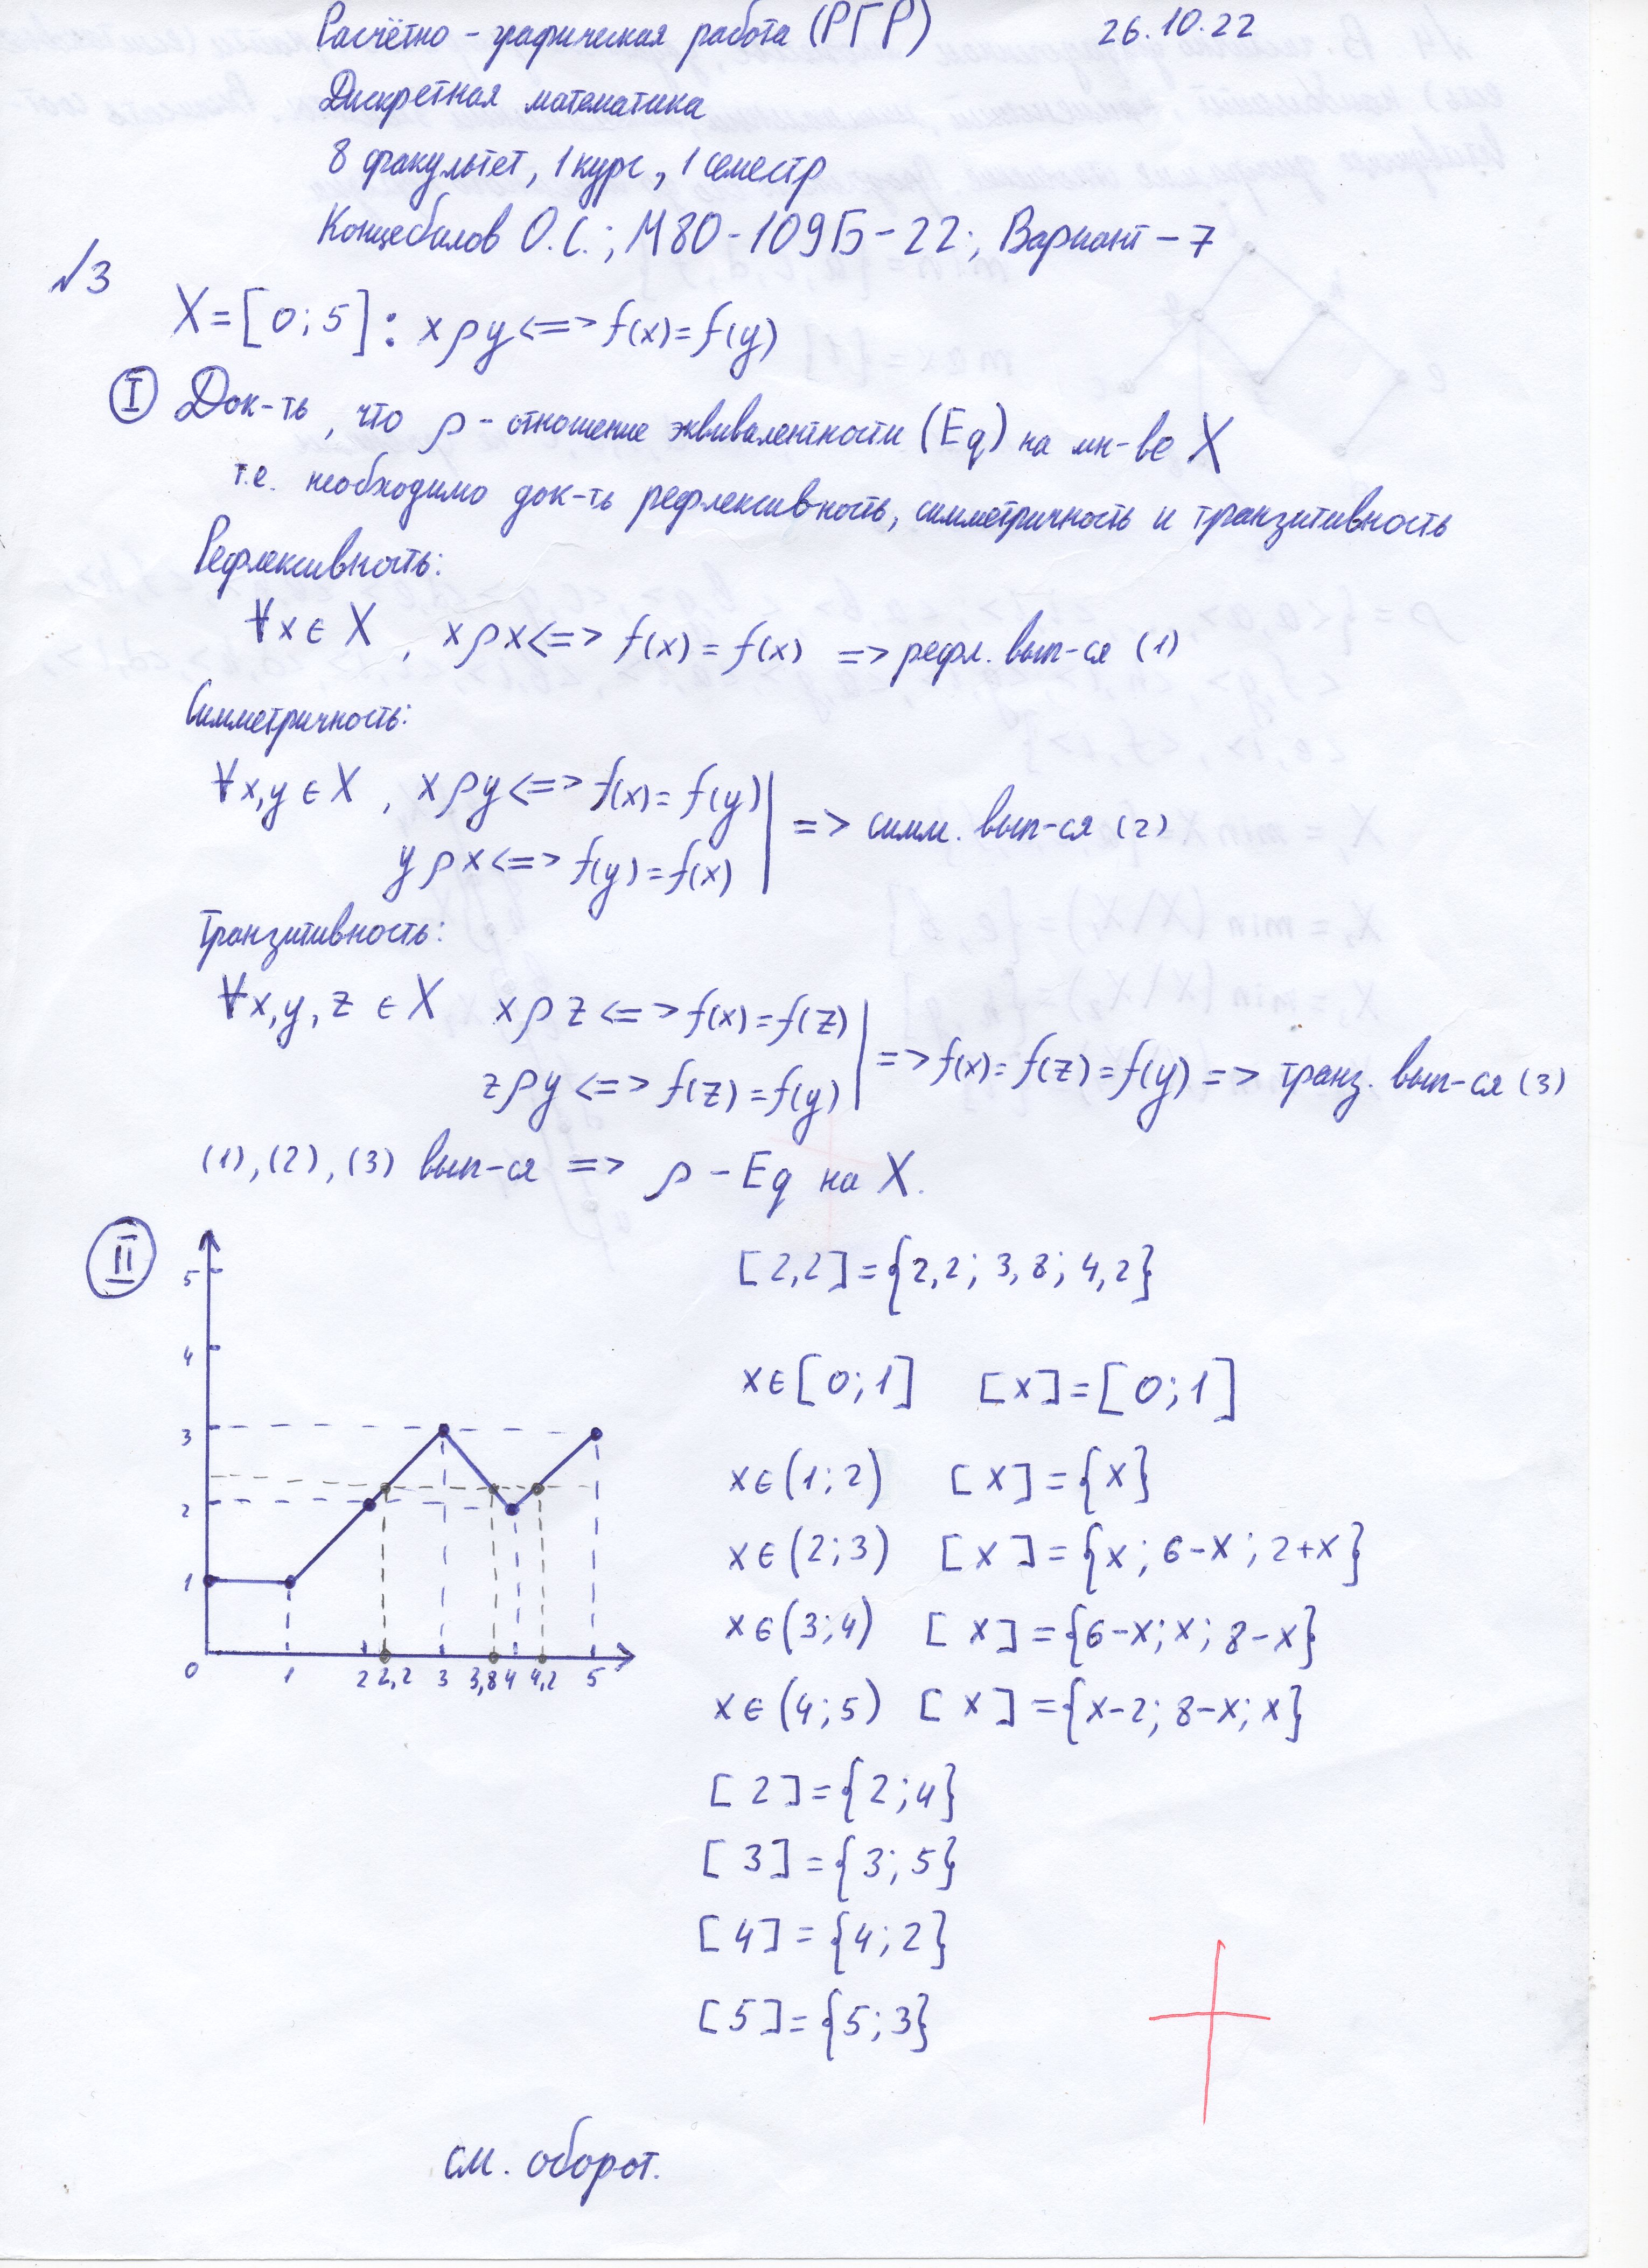 Расчётно - графическая работа (РГР) 26.10.22
Дискретная математика
8 факультет, 1 курс, 1 семестр
Концебалов О.С.; М80-109Б-22; Вариант - 7
№3
X = [0; 5] : x ρ y <=> f(x) = f(y)
I Док-ть, что ρ - отношение эквивалентности (Eq) на мн-ве X
т.е. необходимо док-ть рефлексивность, симметричность и транзитивность
Рефлексивность:
∀x ∈ X, x ρ x <=> f(x) = f(x) => рефл. вып-ся (1)
Симметричность:
∀x,y ∈ X, x ρ y <=> f(x) = f(y)
=> симм. вып-ся (2)
y ρ x <=> f(y) = f(x)
Транзитивность:
∀x,y,z ∈ X x ρ z <=> f(x) = f(z)
=> f(x) = f(z) = f(y) => транз. вып-ся (3)
z ρ y <=> f(z) = f(y)
(1), (2), (3) вып-ся => ρ - Eq на X.
II
5
4
3
2
1
0 1 2 2,2 3 3,8 4 4,2 5
[2,2] = {2,2; 3,8; 4,2}
x ∈ [0; 1] [x] = [0; 1]
x ∈ (1; 2) [x] = {x}
x ∈ (2; 3) [x] = {x; 6-x; 2+x}
x ∈ (3; 4) [x] = {6-x; x; 8-x}
x ∈ (4; 5) [x] = {x-2; 8-x; x}
[2] = {2; 4}
[3] = {3; 5}
[4] = {4; 2}
[5] = {5; 3}
см. оборот.